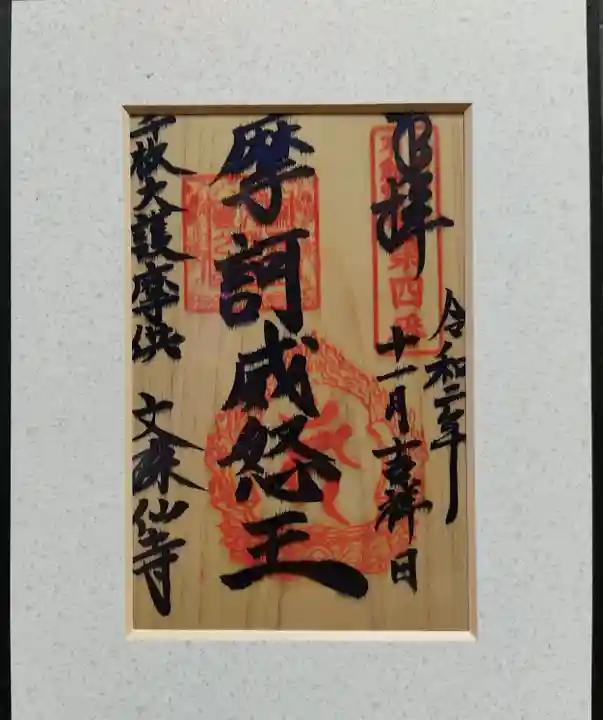 奉拝
令和二年
十一月吉祥日
摩訶威怒王
千枚大護摩供 文殊仙寺
第四番